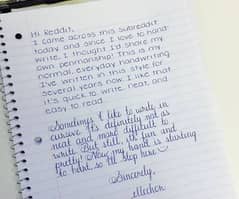 Hi Reddit,
I came across this subreddit
today and since I love to hand
write, I thought I'd share my
own penmanship. This is my
normal, everyday handwriting.
I've written in this style for
several years now. I like that
it's quick to write, neat, and
easy to read.
Sometimes I like to write in
cursive. It's definitely not as
neat and more difficult to
write. But still, it's fun and
pretty! Now my hand is starting
to hurt, so I'll stop here
Sincerely,